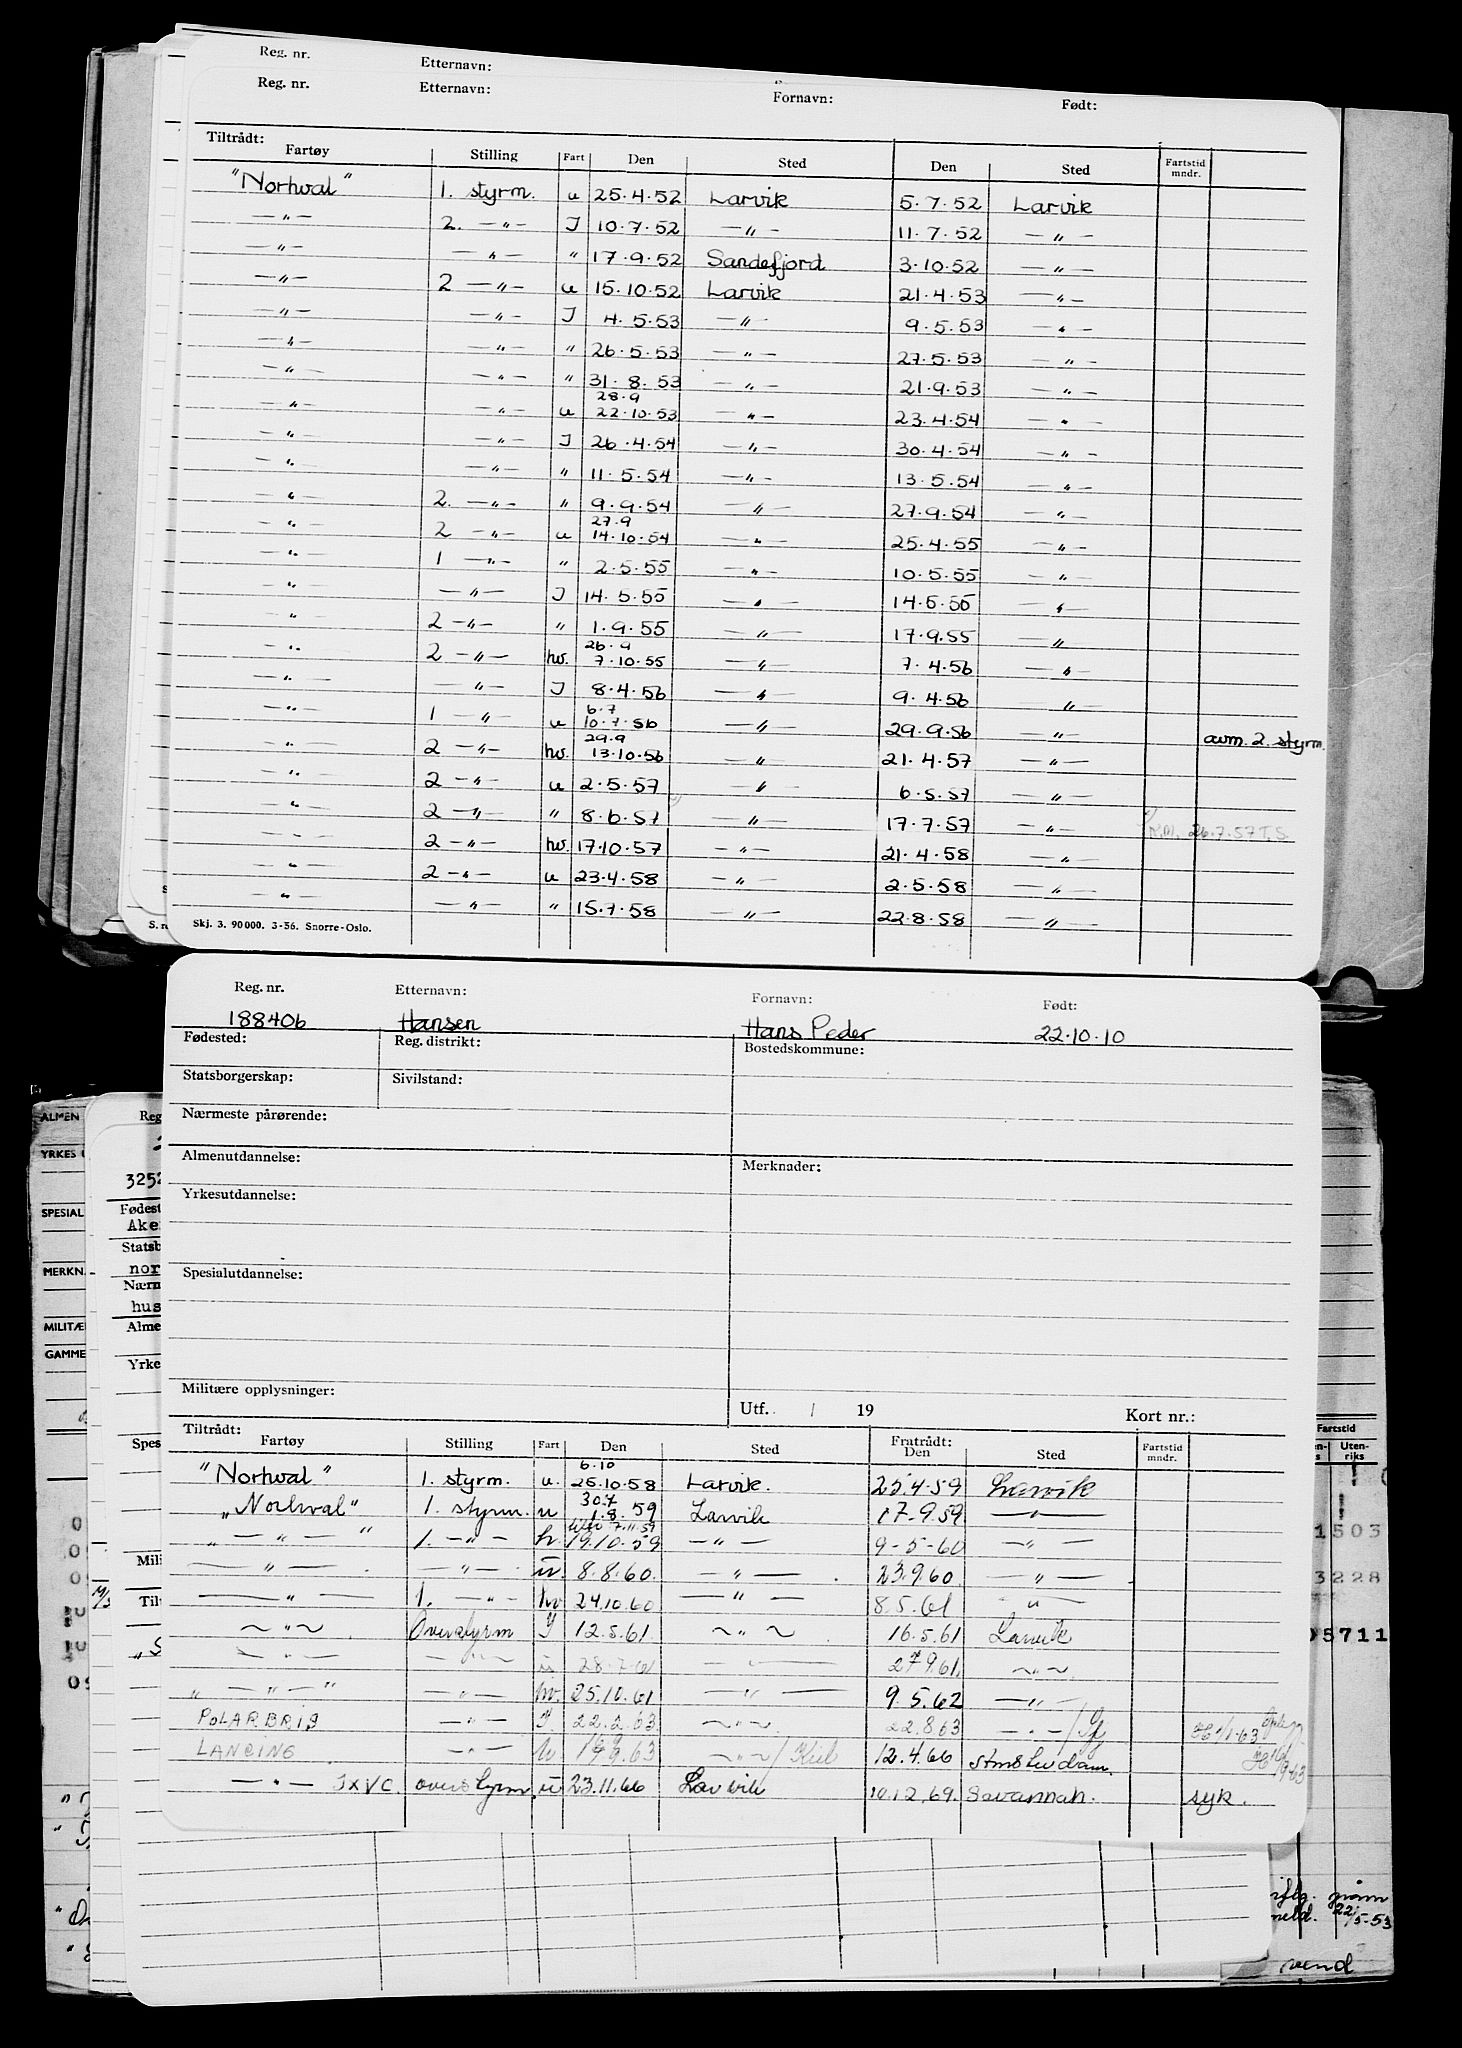 Reg. nr. Etternavn:
Reg. nr. Etternavn: Fornavn: Født:
Tiltrådt:
Fartøy Stilling Fart Den Sted Den Sted Fartstid mndr.
"Norhval" 1. styrm. u 25.4.52 Larvik 5.7.52 Larvik
—"— 2. —"— J 10.7.52 —"— 11.7.52 —"—
—"— —"— " 17.9.52 Sandefjord 3.10.52 —"—
—"— 2 —"— u 15.10.52 Larvik 21.4.53 —"—
—"— —"— J 4.5.53 —"— 9.5.53 —"—
—"— —"— " 26.5.53 —"— 27.5.53 —"—
—"— —"— " 31.8.53 —"— 21.9.53 —"—
28.9
—"— —"— u 22.10.53 —"— 23.4.54 —"—
—"— —"— J 26.4.54 —"— 30.4.54 —"—
—"— —"— " 11.5.54 —"— 13.5.54 —"—
—"— 2. —"— " 9.9.54 —"— 27.9.54 —"—
27.9
—"— 2 —"— u 14.10.54 —"— 25.4.55 —"—
—"— 1 —"— " 2.5.55 —"— 10.5.55 —"—
—"— —"— J 14.5.55 —"— 14.5.55 —"—
—"— 2 —"— " 1.9.55 —"— 17.9.55 —"—
26.9
—"— 2 —"— hv. 7.10.55 —"— 7.4.56 —"—
—"— —"— J 8.4.56 —"— 9.4.56 —"—
6.7
—"— 1 —"— u 10.7.56 —"— 29.9.56 —"— avm. 2. styrm.
29.9
—"— 2 —"— hv. 13.10.56 —"— 21.4.57 —"—
—"— 2 —"— u 2.5.57 —"— 6.5.57 —"—
—"— 2 —"— " 8.6.57 —"— 17.7.57 —"— 26.7.57 T.S.
—"— 2 —"— hv. 17.10.57 —"— 21.4.58 —"—
—"— 2 —"— u 23.4.58 —"— 2.5.58 —"—
—"— —"— " 15.7.58 —"— 22.8.58 —"—
Skj. 3. 90000. 3-56. Snorre-Oslo.
Reg. nr. Etternavn: Fornavn: Født:
188406 Hansen Hans Peder 22.10.10
Fødested: Reg. distrikt: Bostedskommune:
Statsborgerskap: Sivilstand:
Nærmeste pårørende:
Almenutdannelse: Merknader:
Yrkesutdannelse:
Spesialutdannelse:
Militære opplysninger:
Utf. / 19 Kort nr.:
Tiltrådt: Fratrådt:
Fartøy Stilling Fart Den Sted Den Sted Fartstid mndr.
6.10
"Norhval" 1. styrm. u. 25.10.58 Larvik. 25.4.59 Larvik
30.7
"Norhval" 1. styrm. u 1.8.59 Larvik 17-9.59 —"—
7.11.59
"—"—" 1. —"— h. 19.10.59 —"— 9-5-60 —"—
—"— —"— u. 8.8.60. —"— 23.9.60. —"—
—"— 1. —"— hv 24.10.60 —"— 8.5.61 —"—
—"— Overstyrm J 12.5.61. —"— 16.5.61 Larvik
—"— —"— u 28.7.61 —"— 27.9.61. —"—
"—"—" —"— hv. 25.10.61 —"— 9.5.62 —"—
POLARBRIS —"— J. 22.2.63. —"— 22.8.63 —"—
LANCING —"— 19.9.63 —"—/Kiel 12.4.66 Amsterdam.
—"— JXVC. overstyrm. u 23.11.66 Larvik 10.12.69. Savannah. syk.
ALMEN
YRKES
SPESIAL
MERKN
MILITÆ
GAMME
Reg
3252
Fødest
Ake
Statsb
nor
Nærm
hus
Alme
Yrke
Spes
Mili
Til
Fartstid
Uten-riks
1503
3228
5711
22/5-53
vend